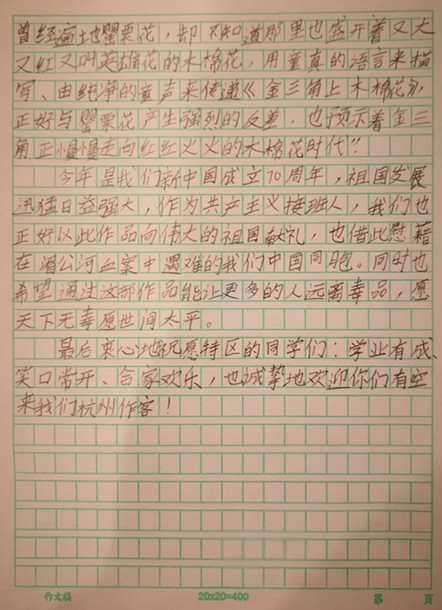 曾经遍地罂粟花，却不知道那里也盛开着又大
又红又叫英雄花的木棉花，用童真的语言来描
写、由纯净的童声来传递《金三角上木棉花》，
正好与罂粟花产生强烈的反差，也预示着金三
角正慢慢走向红红火火的木棉花时代？
今年是我们新中国成立70周年，祖国发展
迅猛日益强大，作为共产主义接班人，我们也
正好以此作品向伟大的祖国献礼，也借此慰藉
在湄公河血案中遇难的我们中国同胞。同时也
希望通过这部作品能让更多的人远离毒品，愿
天下无毒愿世间太平。
最后衷心地祝愿特区的同学们：学业有成、
笑口常开、合家欢乐，也诚挚地欢迎你们有空
来我们杭州作客！
作文稿 20x20=400 第 页